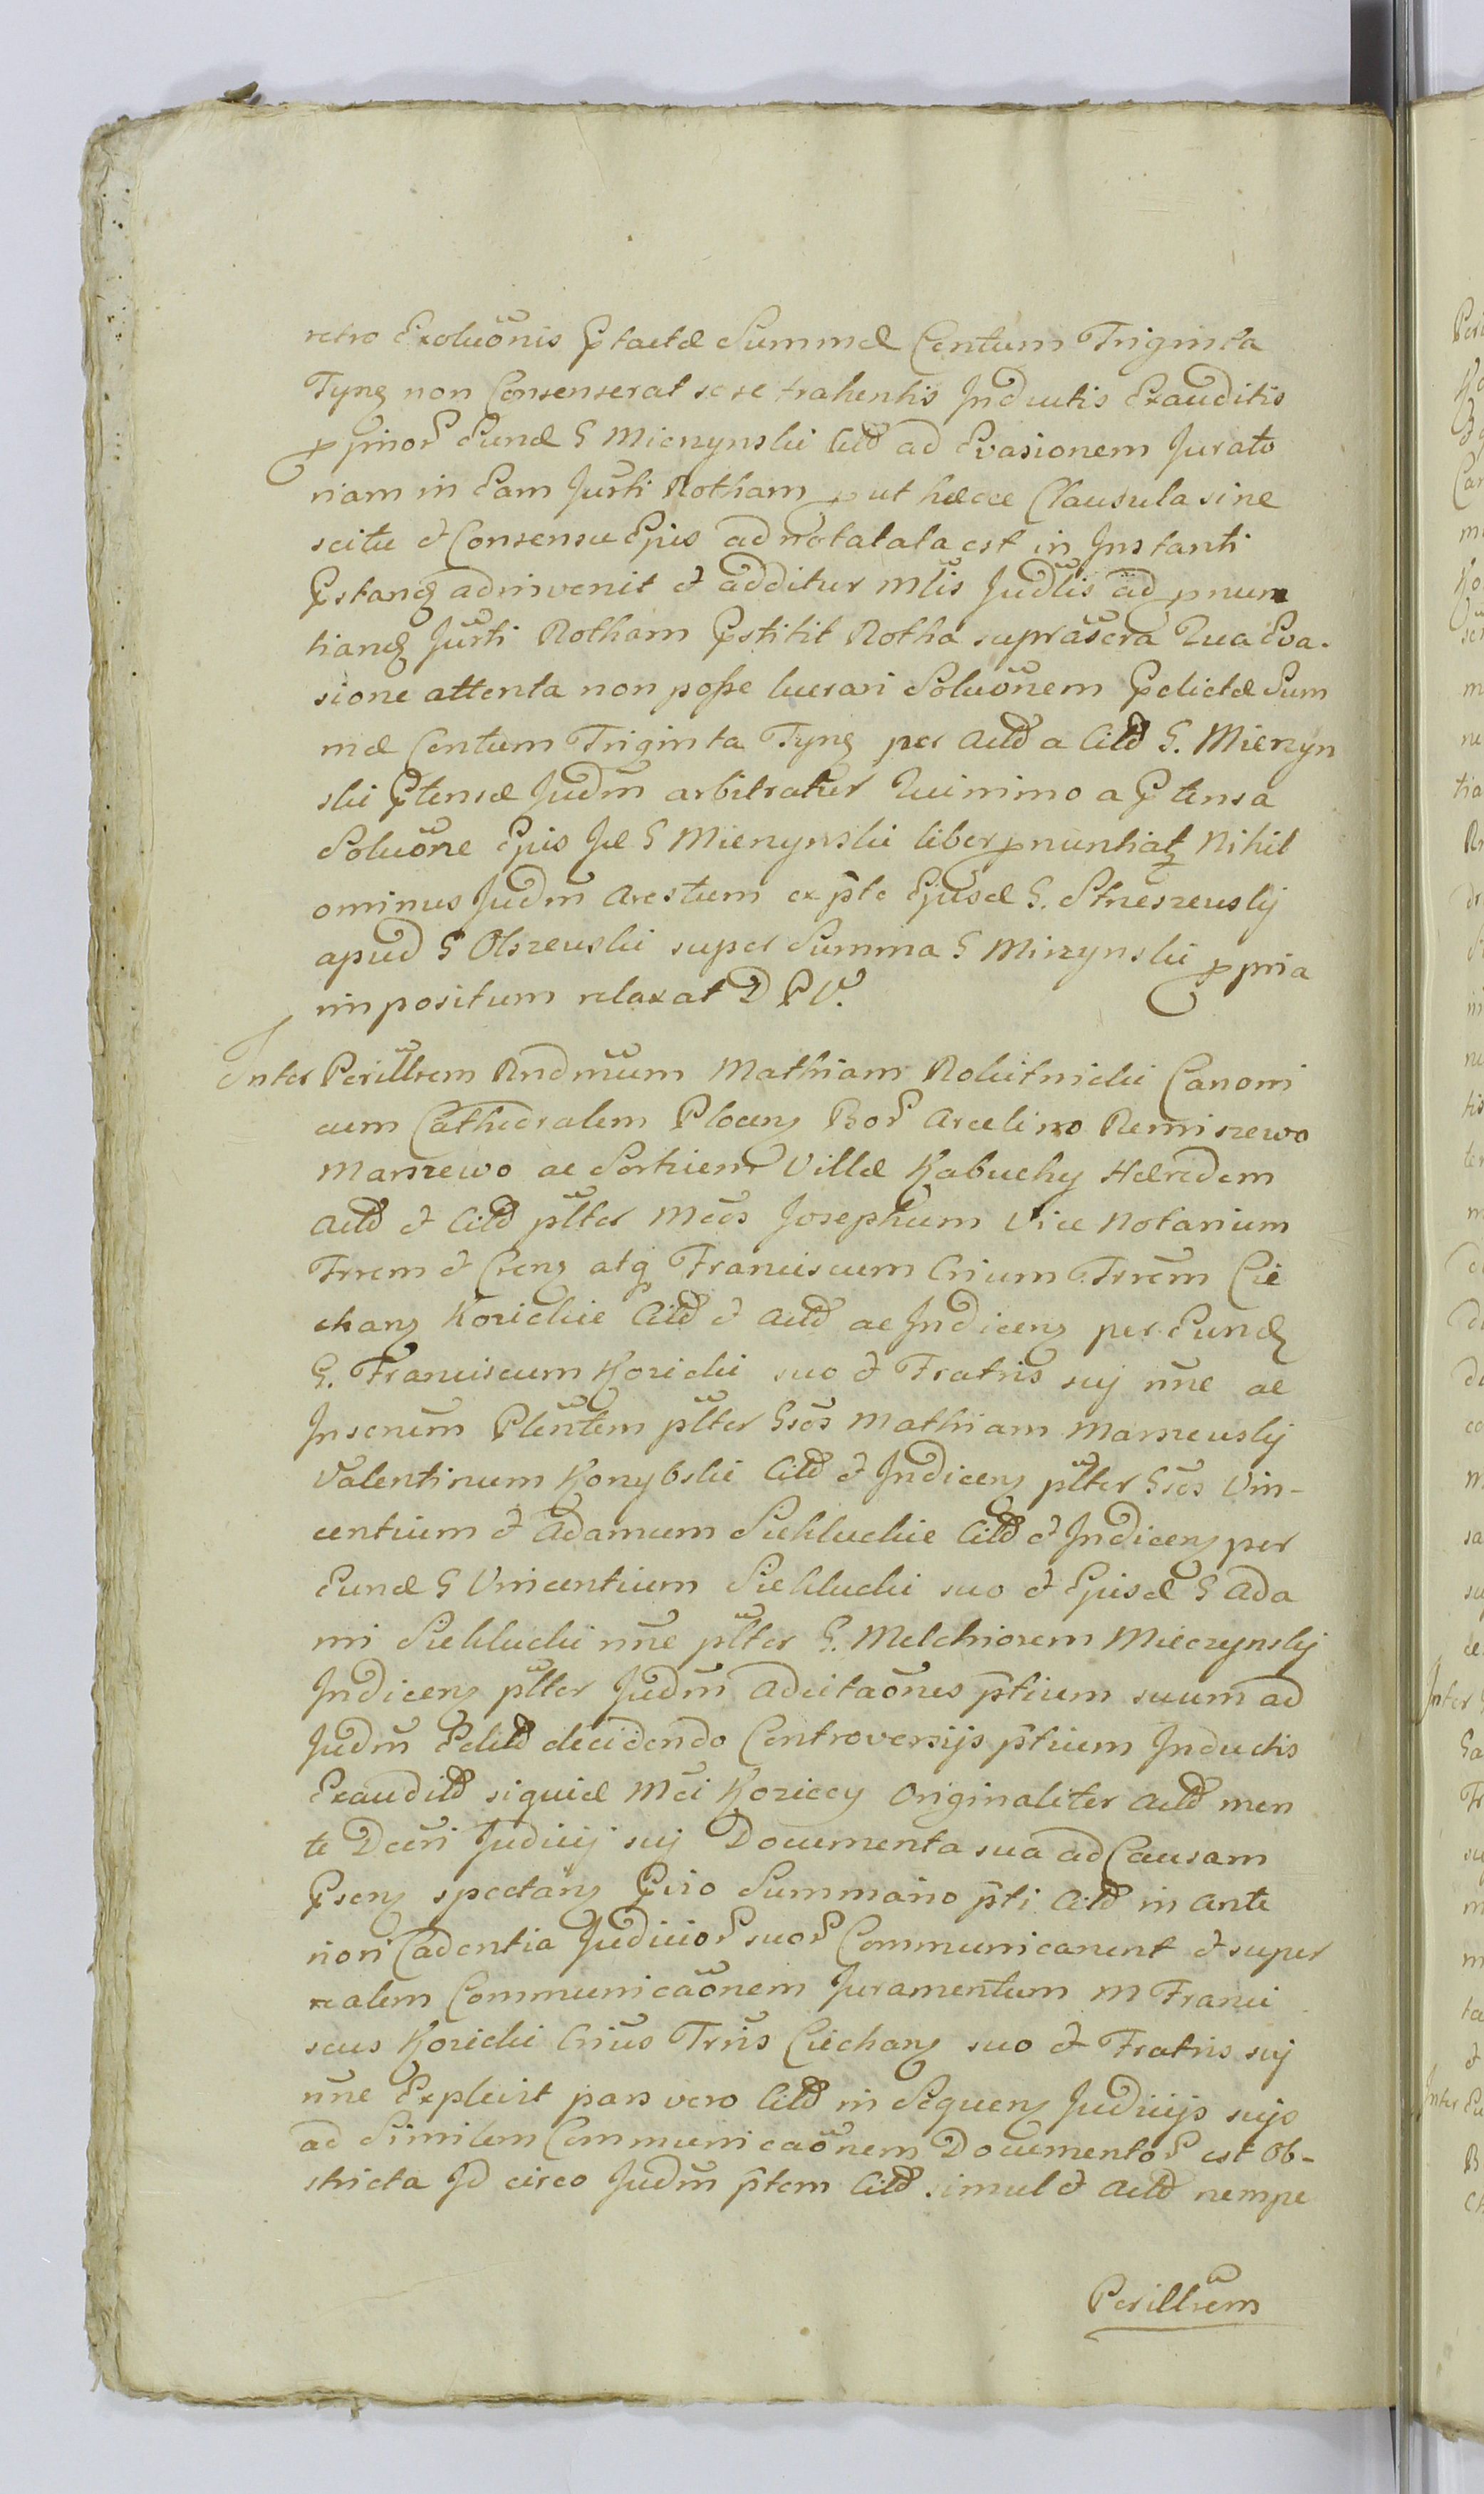 retro Exoluõnis Ptactæ Summæ Centum Triginta
Tynf non Consenserat sese trahentis Inductis Exauditis
Eund G Mierzynski Citd ad Evasionem Jurato
riam in Eam Jurti Rotham put hæcce Clausula sine
scitu & Consensu Ejus adnotatata est in Instanti
Pstand adinvenit & additur Mlis Judlis ad pnun
tiand Jurti Rotham Pstitit Rotha suprascra Qua Eva-
sione attenta non posse lucrari Soluõnem Pdictæ Sum
mæ Centum Triginta Tynf per Actd a Citd G. Mierzyn
ski Ptensæ Judm arbitratur Quinimo a Ptensa
Soluõne Ejus G Mierzynski liber pnuntiat Nihil
ominus Judm Arestum ex pte Ejusd G. Strzeszewskij
apud G Olszewski super Summa G Mirzynski ppria
impositum relaxat D P V.
Inter Perillrem Rndmum Mathiam Rokitnicki Canoni
cum Cathedralem Plocens Bor Arcelino Remiszewo
Marszewo ac Sortium Villæ Kabuchy Hæredem
Actd & Citd plter Mcos Josephum Vice Notarium
Trrem & Crens atq Franciscum Crium Trrem Cie
chans Kozickie Citd & Actd ac Indicens per Eund
G. Franciscum Kozicki suo & Fratris suj nne ac
Insenem Plentem plter Gsos Mathiam Marszewskij
Valentinum Konybski Citd & Indicens plter Gsos Vin-
centium & Adamum Siekluckie Citd & Indicens per
Eund G Vincentium Sieklucki suo & Ejusd G Ada
mi Sieklucki nne plter G. Melchiorem Mieczynskij
Indicens plter Judm Adcitaõnes ptium suum ad
Judm Editd decidendo Controversijs ptium Inductis
Exauditd siquid Mci Koziccy Originaliter Actd men
te Decri Judicij suj Documenta sua ad Causam
Psens spectans Pvio Summario pti Citd in Ante
riori Cadentia Judicior suor Communicarunt & super
realem Communicaõnem Juramentum M Franci
scus Kozicki Crius Trris Ciechans suo & Fratris suj
nne Explevit pars vero Citd in Sequens Judicijs sujs
ad Similem Communicaõnem Documentor est Ob-
stricta Id circo Judm ptem Citd simul & Actd nempe
Perillrem